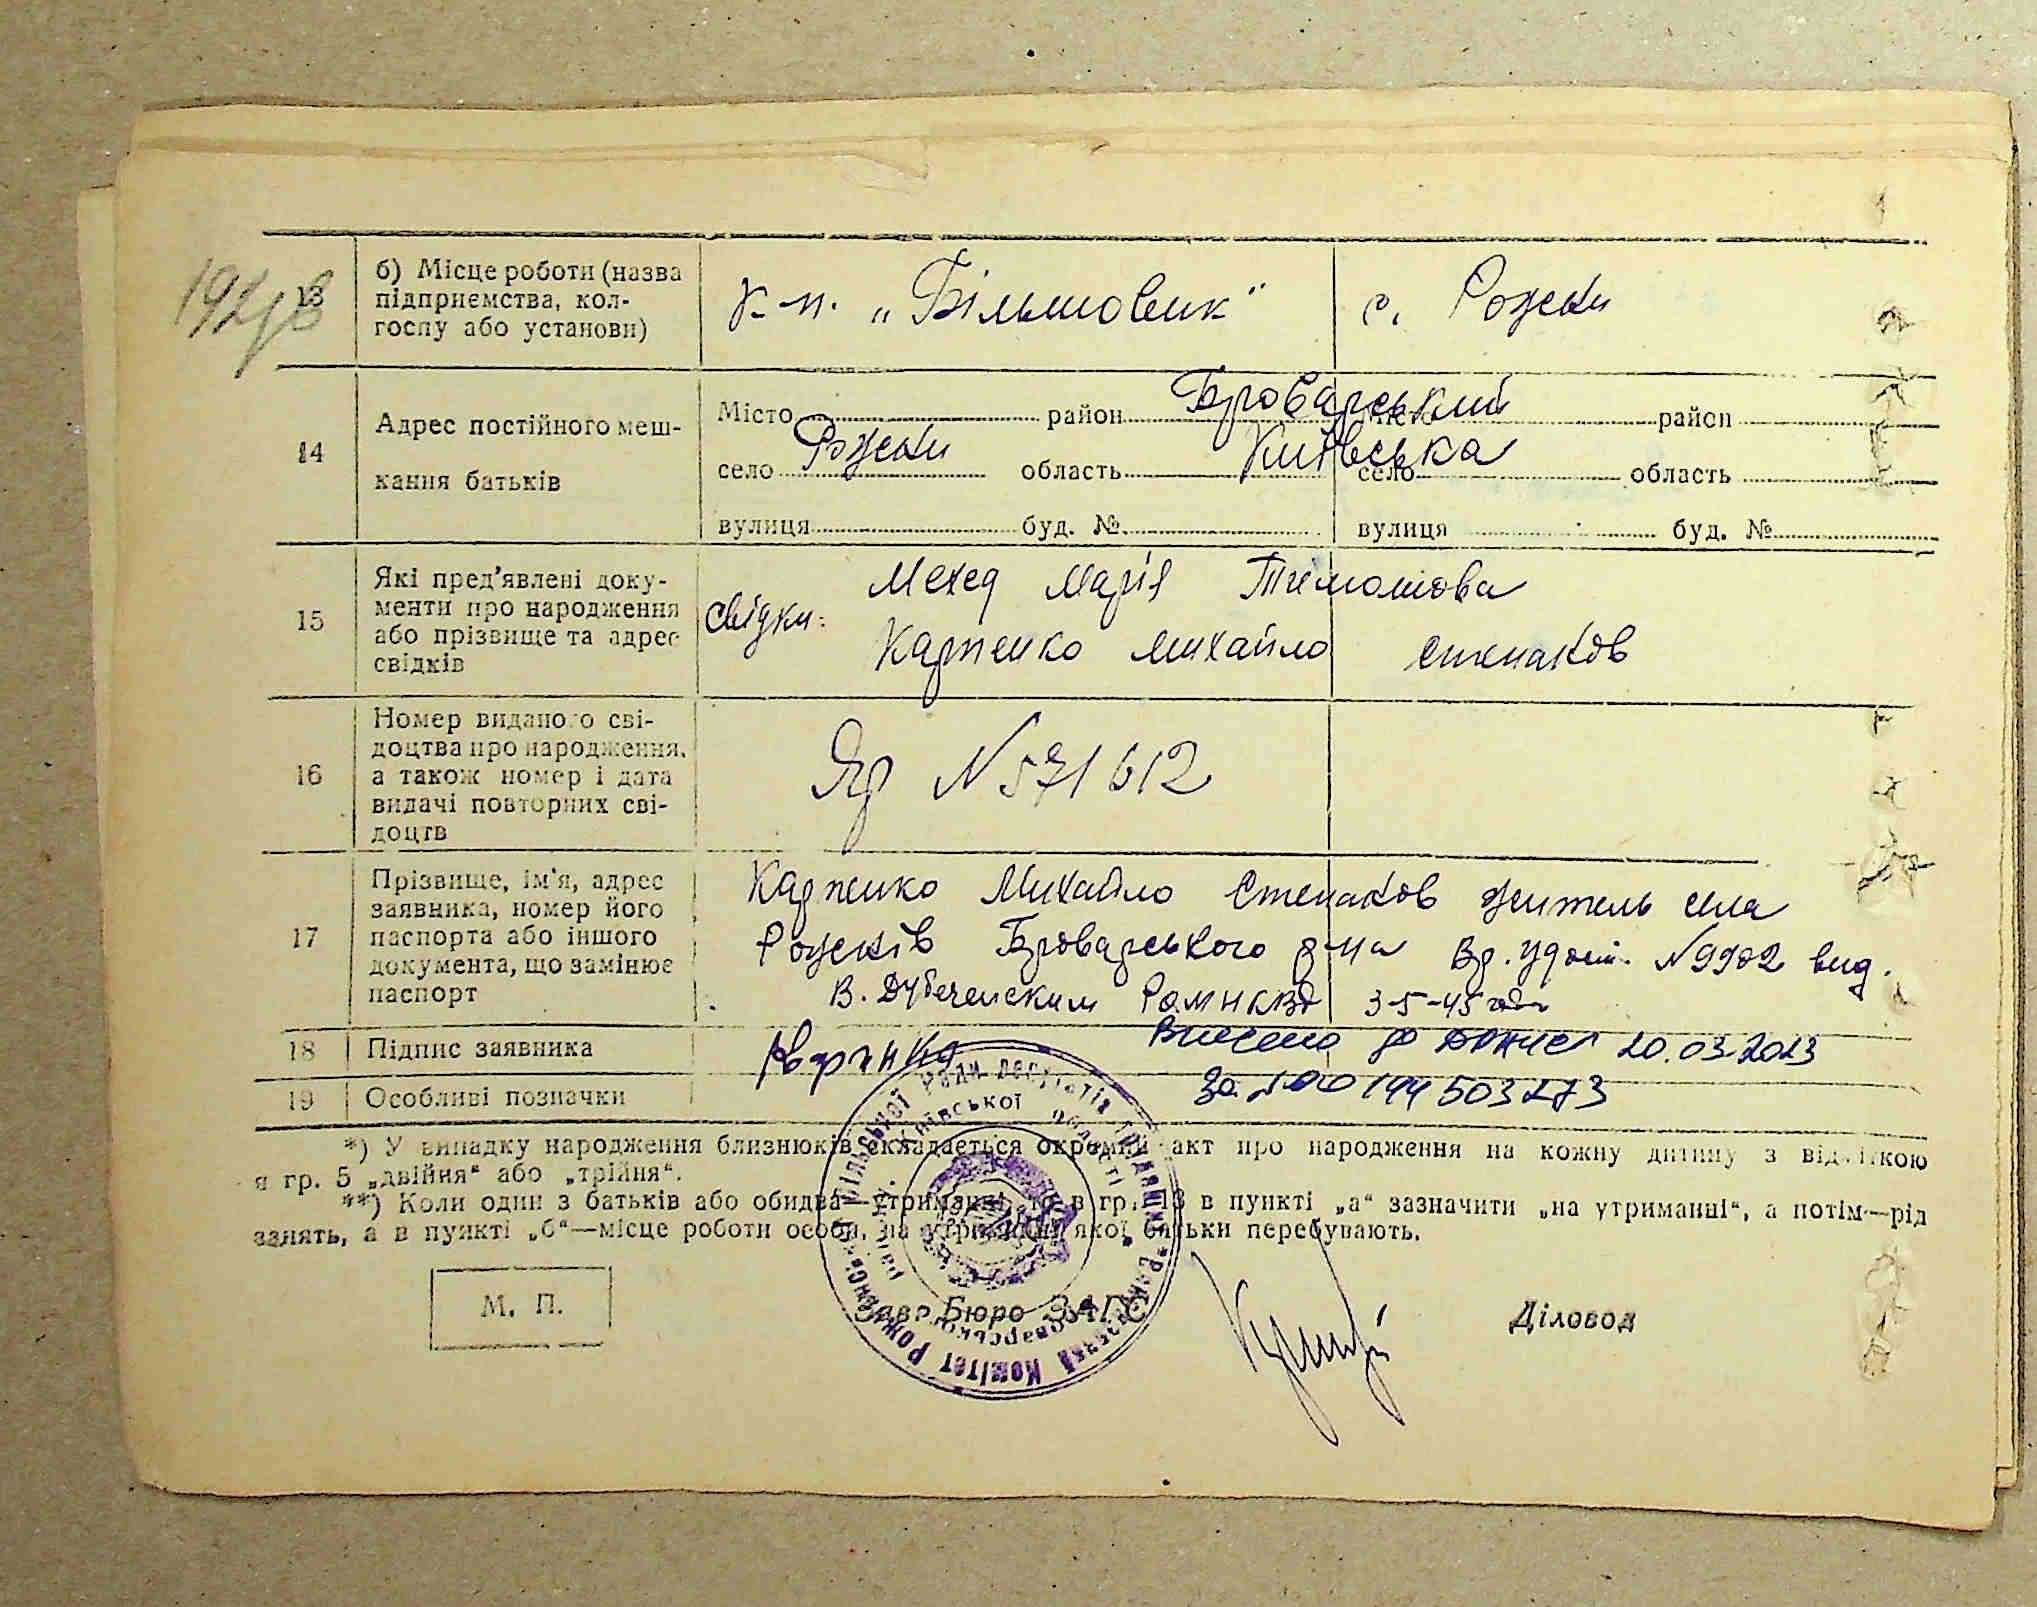 13
б) Місце роботи (назва
підприємства, кол-
госпу або установи)
к-п. „Більшовик"
с. Рожни
14
Адрес постійного меш-
кання батьків
Місто район Броварський місто район
село Рожни область Київська село область
вулиця буд. № вулиця буд. №
15
Які пред'явлені доку-
менти про народження
або прізвище та адрес
свідків
свідки: Мехед Марія Тимошова
Карпенко Михайло Степанов
16
Номер виданого сві-
доцтва про народження,
а також номер і дата
видачі повторних сві-
доцтв
Яр N 571612
17
Прізвище, ім'я, адрес
заявника, номер його
паспорта або іншого
документа, що замінює
паспорт
Карпенко Михайло Степанов житель села
Рожнів Броварського р-на Вр. удост. №9902 вид.
В. Дубеченским НКВД 3-5-45
18
Підпис заявника
Внесено до ДРАЦС 20.03.2023
19
Особливі позначки
за №00144503273
*) У випадку народження близнюків складається окремий акт про народження на кожну дитину з відміткою
в гр. 5 „двійня“ або „трійня“.
**) Коли один з батьків або обидва—утриманці, то в гр. 13 в пункті „а“ зазначити „на утриманні“, а потім—рід
занять, а в пункті „б“—місце роботи особи, на утриманні якої батьки перебувають.
М. П.
Зав. Бюро ЗАГС
Діловод